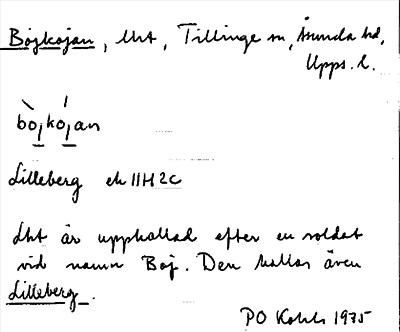 Böjkojan, lht, Tillinge sn, Åsunda hd,
Upps. l.
bòjkójan
Lilleberg ek 11H2c
Lht är uppkallad efter en soldat
vid namn Boj. Den kallas även
Lilleberg.
PO 1975